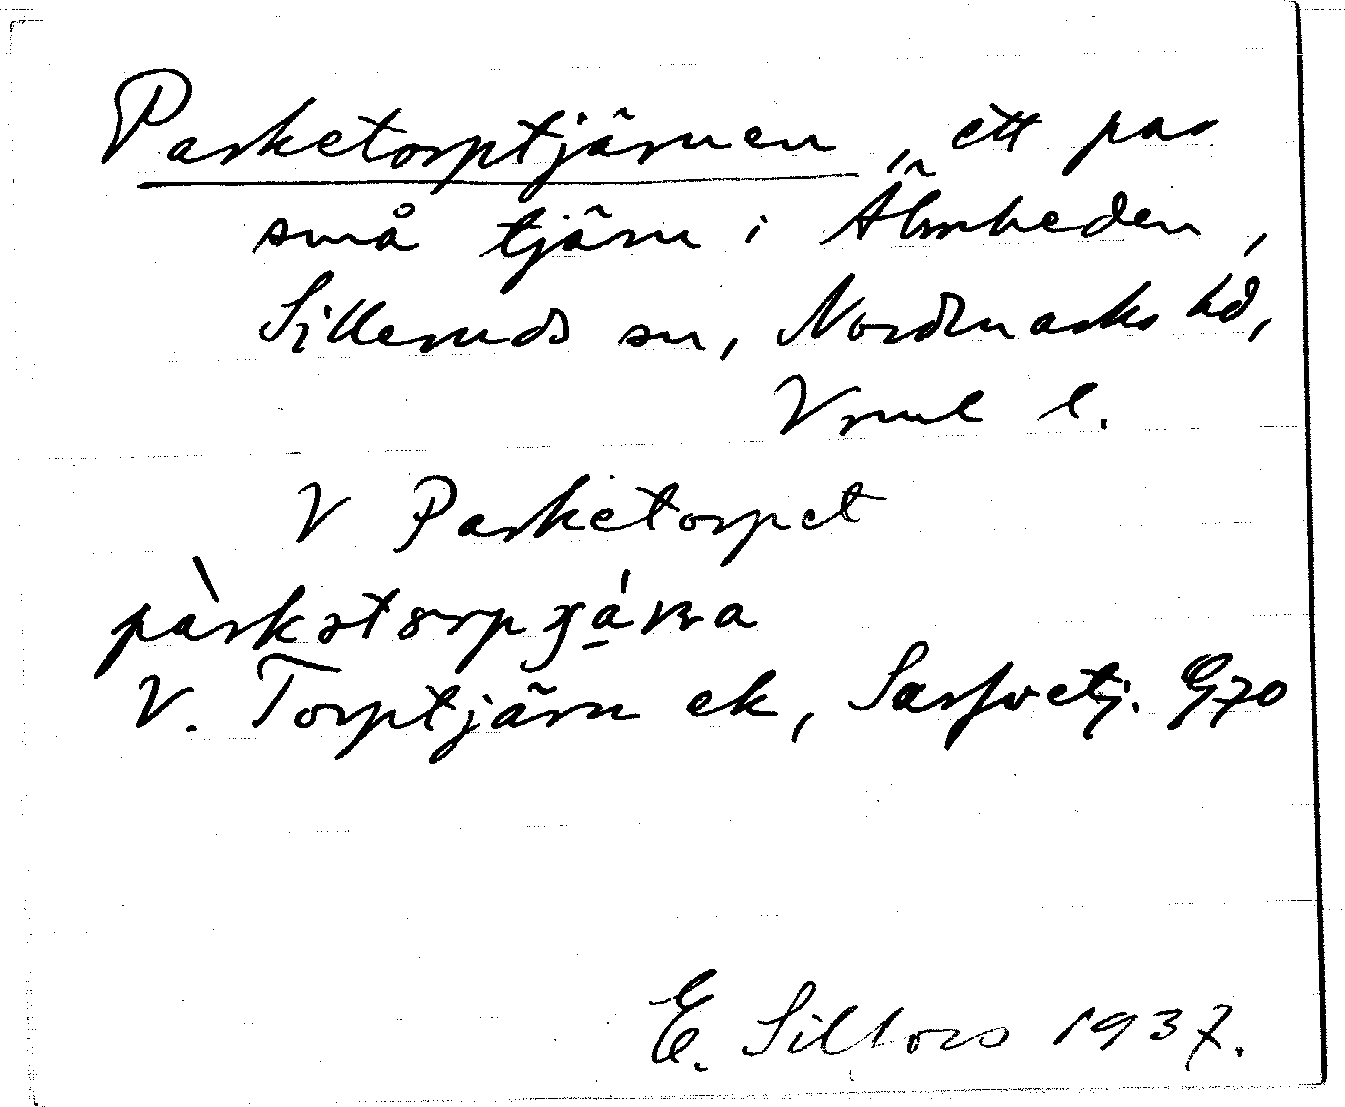 Parketorptjärnen, ett par
små tjärn i Älmheden,
Silleruds sn, Nordmarks hd,
Vrml l.
V Parketorpet
pàrkətorpɟá̱ɳa
V. Torptjärn ek,
E. Sillors 1937.